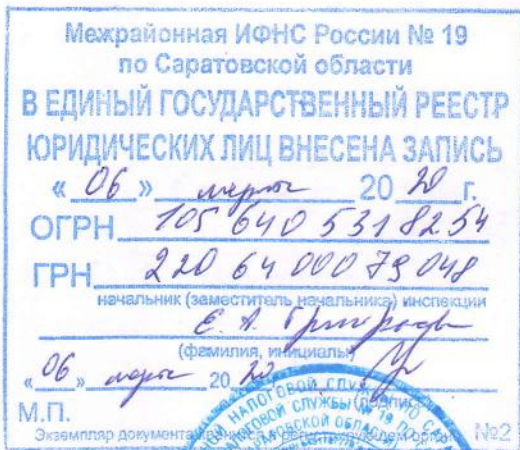 Межрайонная ИФНС России № 19
по Саратовской области
В ЕДИНЫЙ ГОСУДАРСТВЕННЫЙ РЕЕСТР
ЮРИДИЧЕСКИХ ЛИЦ ВНЕСЕНА ЗАПИСЬ
« 06 » марта 20 20 г.
ОГРН 105 640 531 8254
ГРН 220 64 000 79 048
начальник (заместитель начальника) инспекции
Е. А.
(фамилия, инициалы)
« 06 » марта 20 20
(подпись)
М.П.
Экземпляр документа хранится в регистрирующем органе №2
НАЛОГОВОЙ
НАЛОГОВОЙ СЛУЖБЫ № 19 ПО